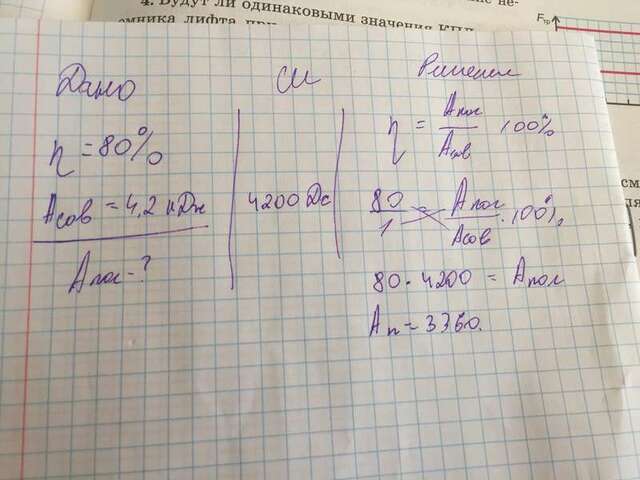 4. Будут ли одинаковыми значения КПД
ёмника лифта при
Fтр
Дано
η = 80%
Aсов = 4,2 кДж
Aпол - ?
СИ
4200 Дж
Решение
η = Aпол / Aсов 100%
80 / 1 = Aпол / Aсов · 100%
80 · 4200 = Aпол
Aп = 3360.